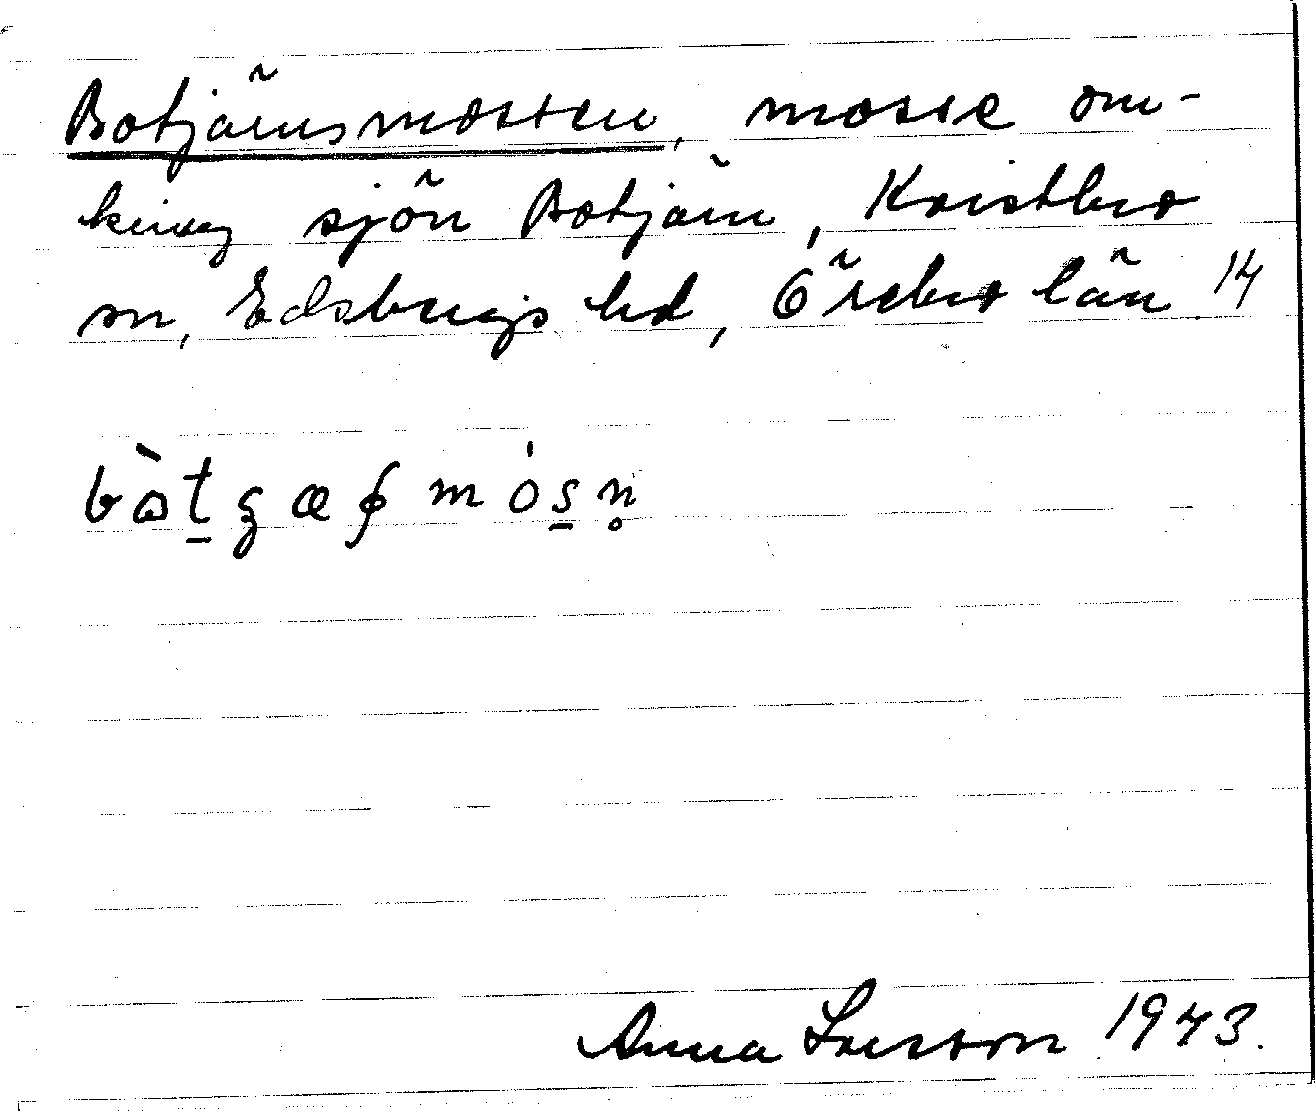 Botjärnsmossen, mosse om-
kring sjön Botjärn, Kvistbro
sn, Edsbergs hd, Örebro län 14
Anna Larsson 1943.